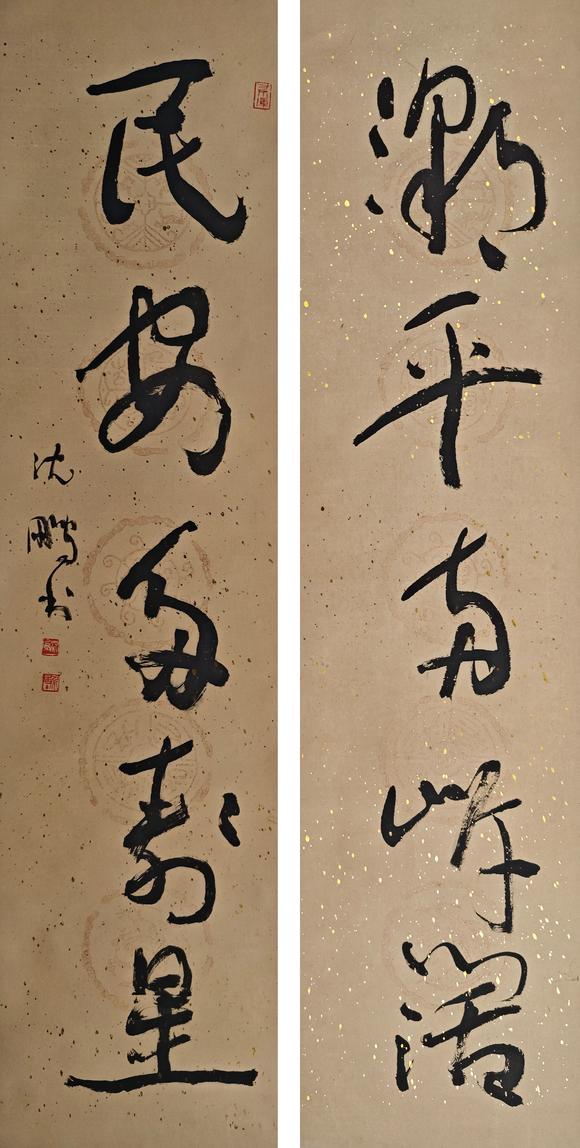 潮平两岸阔
民安多寿星
沈鹏书